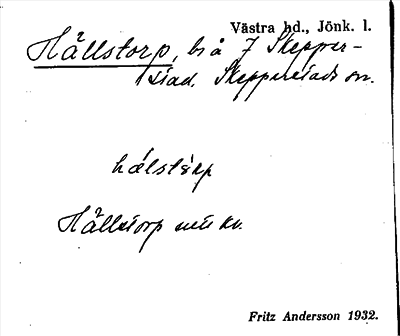 Västra hd., Jönk. l.
Hällstorp, bi å 7 Skepper-
stad, Skepperstads sn.
hälstårp
Hällstorp
Fritz Andersson 1932.